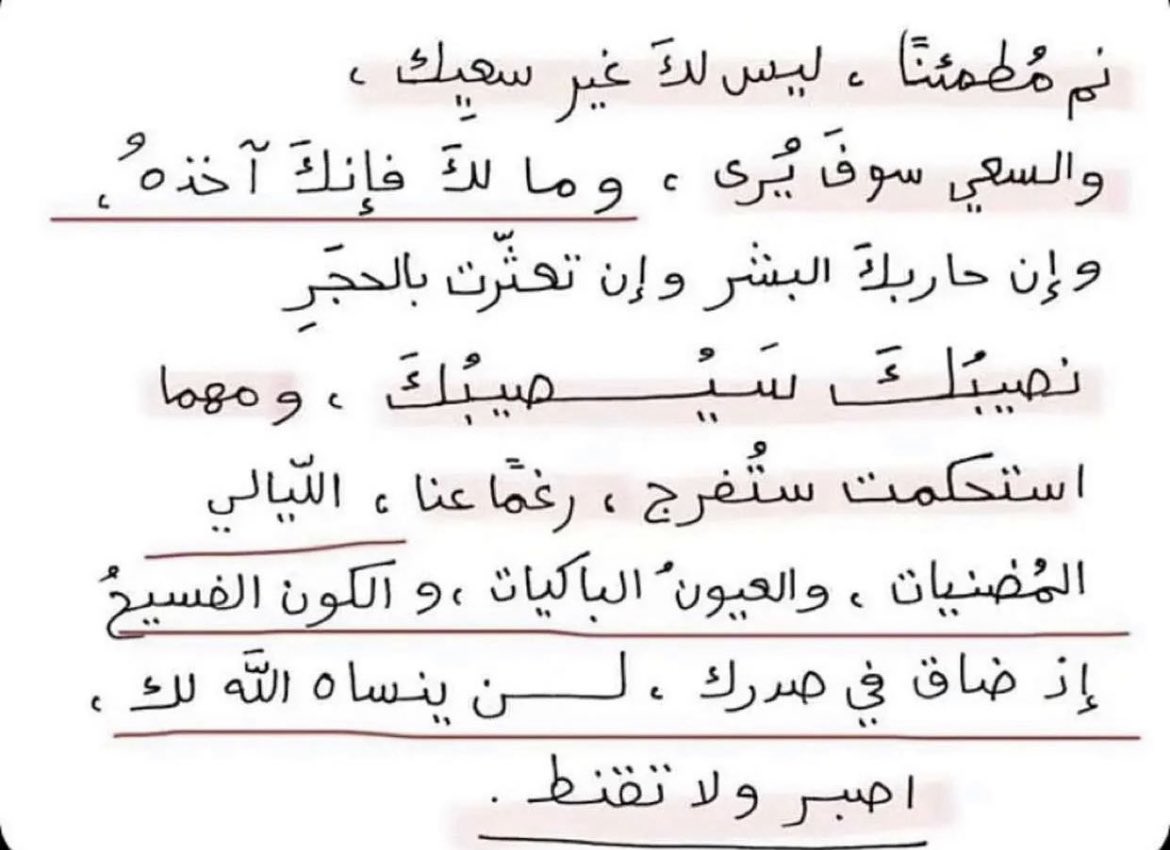 نم مُطمئنًّا ، ليس لكَ غير سعيِك ،
والسعي سوفَ يُرى ، وما لكَ فإنكَ آخذهُ ،
وإن حاربكَ البشر وإن تعثّرت بالحجَرِ
نصيبُكَ سَيُـــصيبُكَ ، ومهما
استحكمت ستُفرج ، رغمًا عنا ، اللّيالي
المُضنيات ، والعيونُ الباكيات ، و الكون الفسيحُ
إذ ضاق في صدرك ، لـــن ينساه اللَّه لك ،
اصبر ولا تقنط .